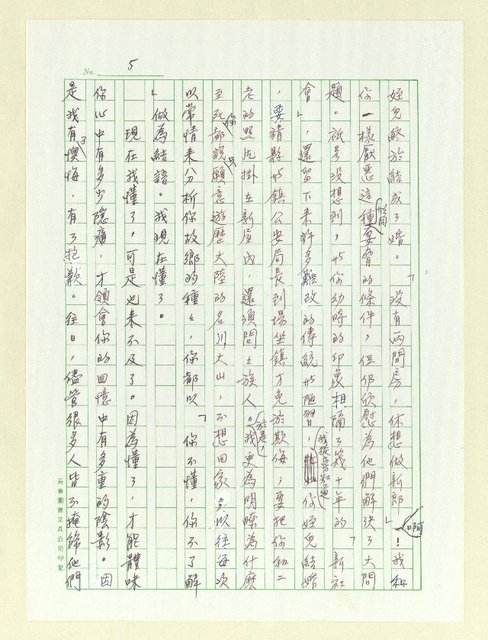 No. 5
姪兒終於結成了婚。「沒有兩間房,休想做新郎」啊!我和
你一樣厭惡這種形同要脅的條件,但仍欣慰為他們解決了大問
題。祇是沒想到,與你幼時的印象相隔了幾十年的「新社
會」,還留下來許多難改的傳統與陋習,我從旁知道你姪兒結婚
,要請縣與鎮公安局長到場坐鎮才免於欺侮;要把你和二
老的照片掛在新屋內,還須問問族人。於是,我更為明瞭為什麼
你至死都只願意遊歷大陸的名川大山,不想回家。以往每次
以常情來分析你故鄉的種種,你都以「你不懂,你不了解
」做為結語。我現在懂了。
現在我懂了,可是也來不及了。因為懂了,才能體味
你心中有多少隱痛,才領會你的回憶中有多重的陰影。因
是我有了懊悔,有了抱歉。往日,儘管很多人皆不掩飾他們